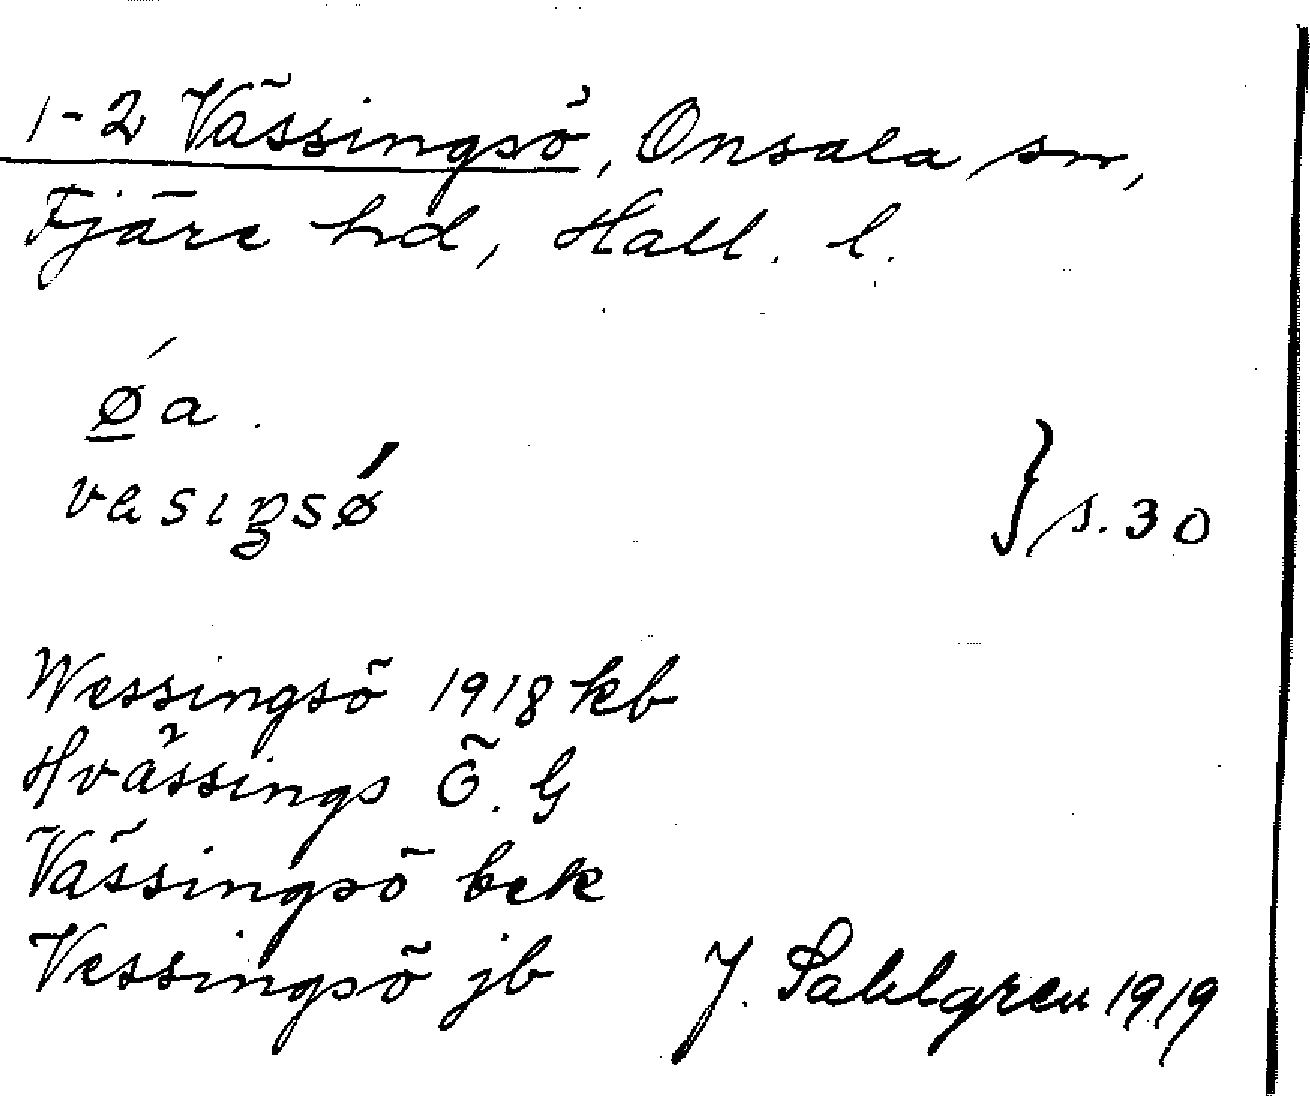 1-2 Vässingsö, Onsala sn,
Fjäre hd, Hall. l.
ǿa.
vasıŋsǿ } s. 30
Wessingsö 1918 kb
Hvässings Ö. G
Vässingsö bek
Vessingsö jb J. Sahlgren 1919